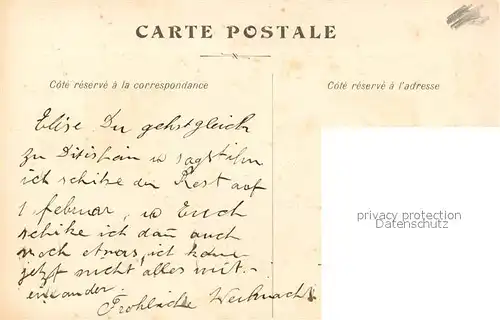 CARTE POSTALE
Côté réservé à la correspondance
Côté réservé à l'adresse
Elise Du gehst gleich
zu Ditishain u sagst ihm
ich schike den Rest auf
1 februar, u Euch
schike ich dan auch
noch etwas, ich kone
jetzt nicht alles mit-
einander.
Fröhliche Weihnacht
privacy protection
Datenschutz